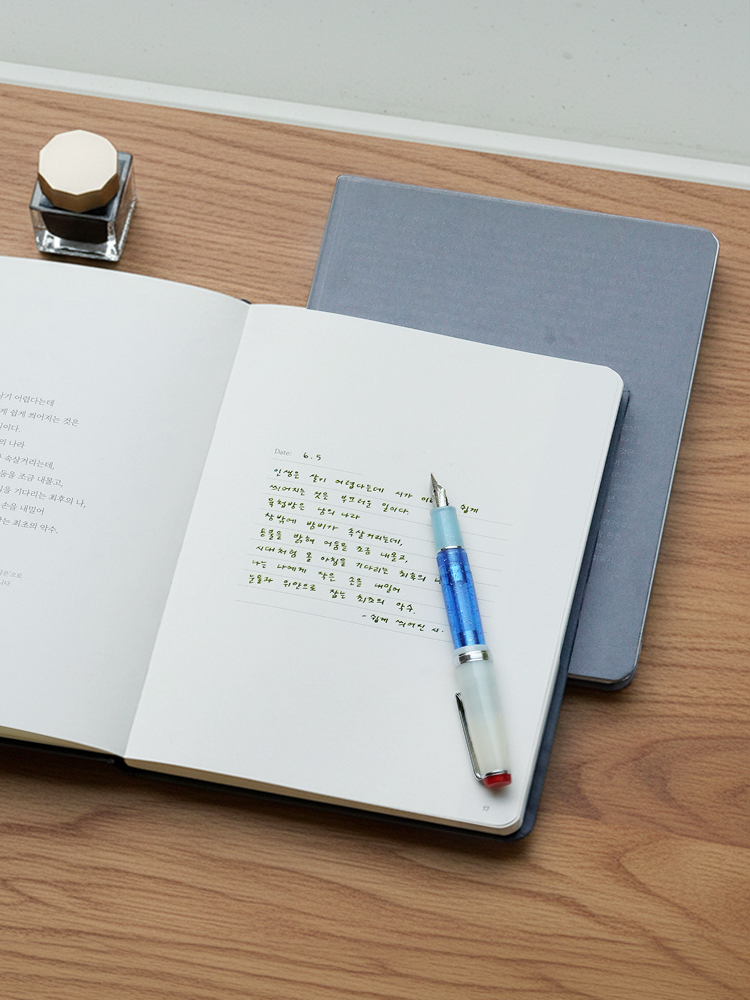 어렵다는데
쉽게 씌어지는 것은
일이다.
나라
속살거리는데,
조금 내몰고,
기다리는 최후의 나,
손을 내밀어
최초의 악수.
Date: 6.5
인생은 살기 어렵다는데 시가 쉽게
씌어지는 것은 부끄러운 일이다.
육첩방은 남의 나라
창밖에 밤비가 속살거리는데,
등불을 밝혀 어둠을 조금 내몰고,
시대처럼 올 아침을 기다리는 최후의
나는 나에게 작은 손을 내밀어
눈물과 위안으로 잡는 최초의 악수.
- 쉽게 씌어진 시.